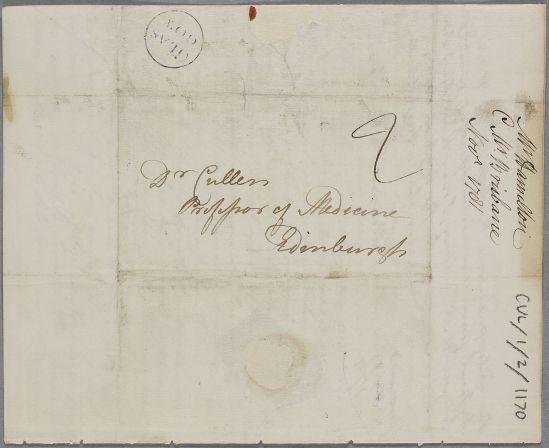 GLAS
GOW
2
Dr Cullen
Professor of Medicine
Edinburgh
Mr Hamilton
C Mr Brisbane
Novr 1781
CUL/1/2/1170